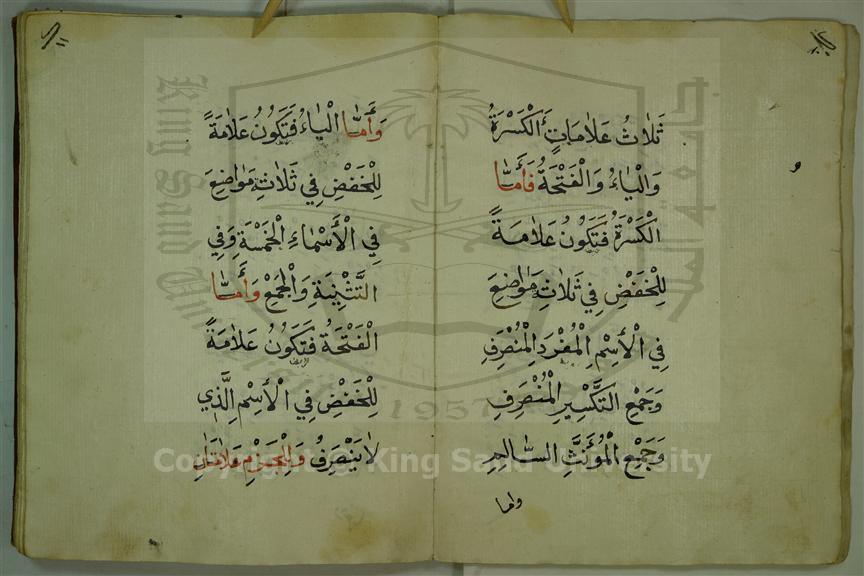 ثَلَاثُ عَلَامَاتٍ اَلْكَسْرَةُ
وَالْيَاءُ وَالْفَتْحَةُ فَأَمَّا
الْكَسْرَةُ فَتَكُونُ عَلَامَةً
لِلْخَفْضِ فِي ثَلَاثِ مَوَاضِعَ
فِي الْاِسْمِ الْمُفْرَدِ الْمُنْصَرِفِ
وَجَمْعِ التَّكْسِيرِ الْمُنْصَرِفِ
وَجَمْعِ الْمُؤَنَّثِ السَّالِمِ
واما
وَأَمَّا الْيَاءُ فَتَكُونُ عَلَامَةً
لِلْخَفْضِ فِي ثَلَاثِ مَوَاضِعَ
فِي الْأَسْمَاءِ الْخَمْسَةِ وَفِي
التَّثْنِيَةِ وَالْجَمْعِ وَأَمَّا
الْفَتْحَةُ فَتَكُونُ عَلَامَةً
لِلْخَفْضِ فِي الْاِسْمِ الَّذِي
لَا يَنْصَرِفُ وَلِلْجَزْمِ عَلَامَتَانِ
جامعة الملك
King Saud University
1957
Copyright © King Saud University